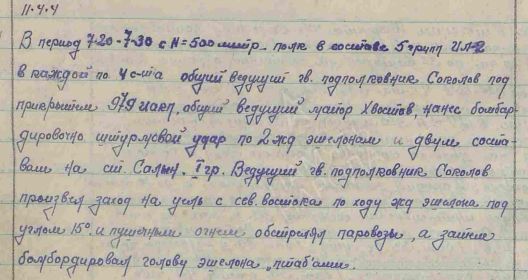 11.4.4
В период 7-20-7-30 с Н=500 метр. полк в составе 5 групп Ил-2
в каждой по 4 с-та общий ведущий гв. подполковник Соколов под
прикрытием 979 иакп, общий ведущий майор Хвостов, нанес бомбар-
дировочно штурмовой удар по 2 жд эшелонам и двум соста-
вам на ст. Салын. I гр. Ведущий гв. подполковник Соколов
произвел заход на цель с сев. востока по ходу жд эшелона под
углом 15° и пушечным огнем обстрелял паровозы, а затем
бомбардировал голову эшелона „птаб'ами.